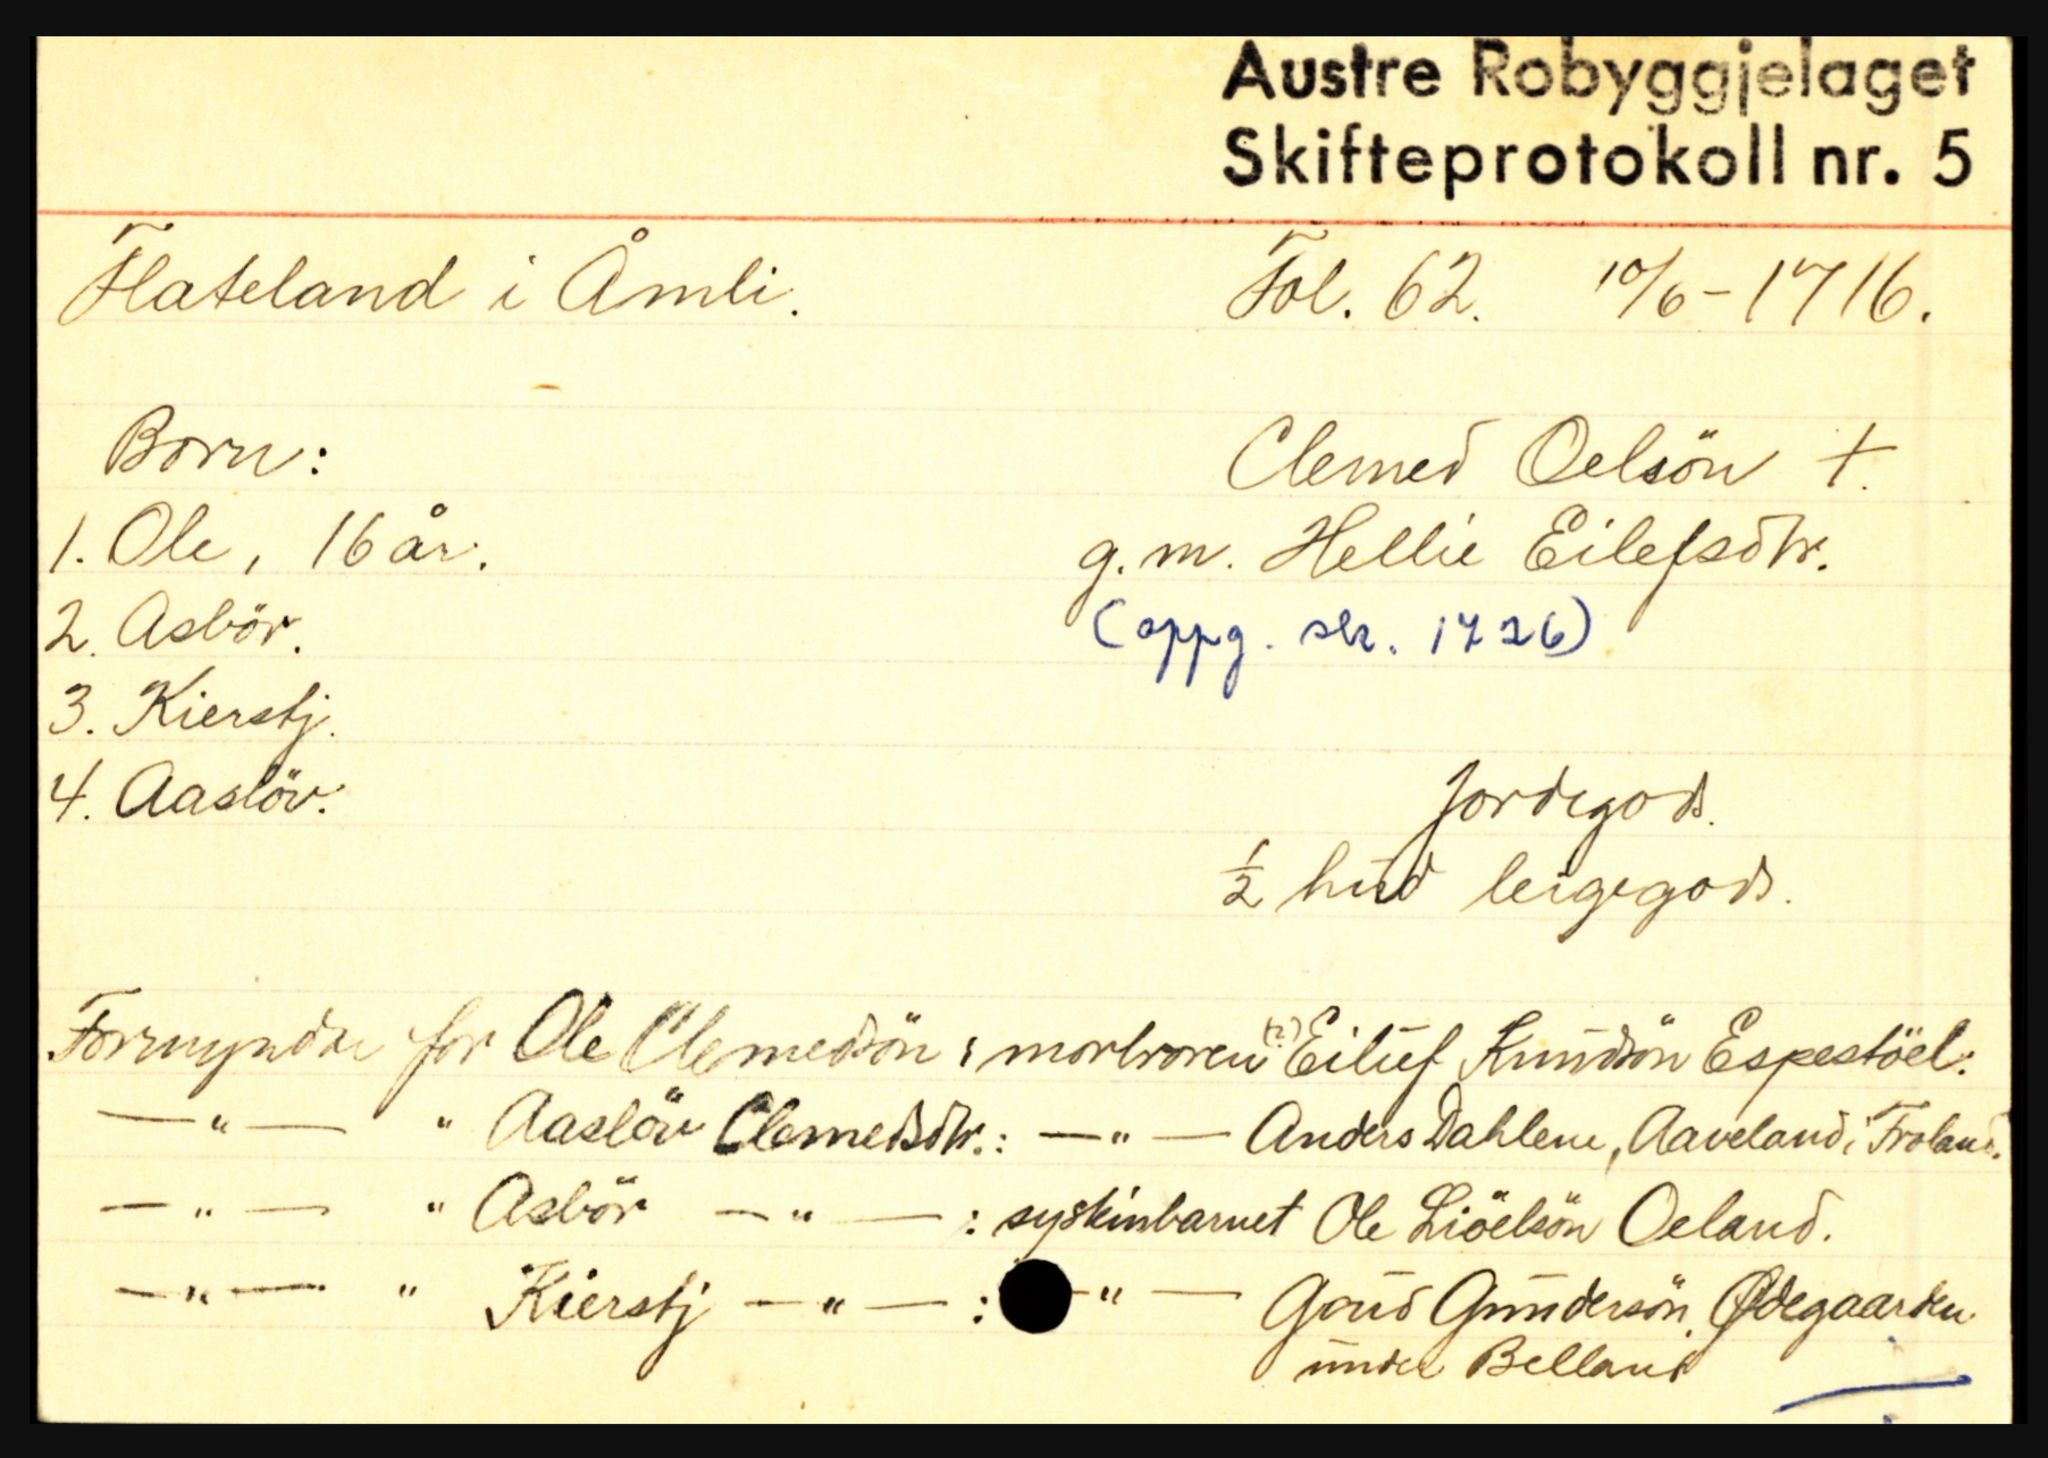 Austre Robyggjelaget
Skifteprotokoll nr. 5
Flateland i Åmli. Fol. 62. 10/6-1716.
Born: Clemed Oelsön †.
1. Ole, 16 år. g.m. Hellie Eilefsdtr.
2. Asbör. (oppg. skr. 1726)
3. Kierstj.
4. Aaslöv. Jordegods.
½ hud leigegods.
Formyndar for Ole Clemedsön: morbroren (?) Eiluf Knudsön Espestöel:
—"— " Aaslöv Clemedsdtr.: —"— Anders Dahlene, Aaveland i Froland.
—"— " Asbör —"—: syskinbarnet Ole Liöelsön Oeland.
—"— " Kierstj —"—: —"— Goud Gundersön, Ødegaarden
under Belland